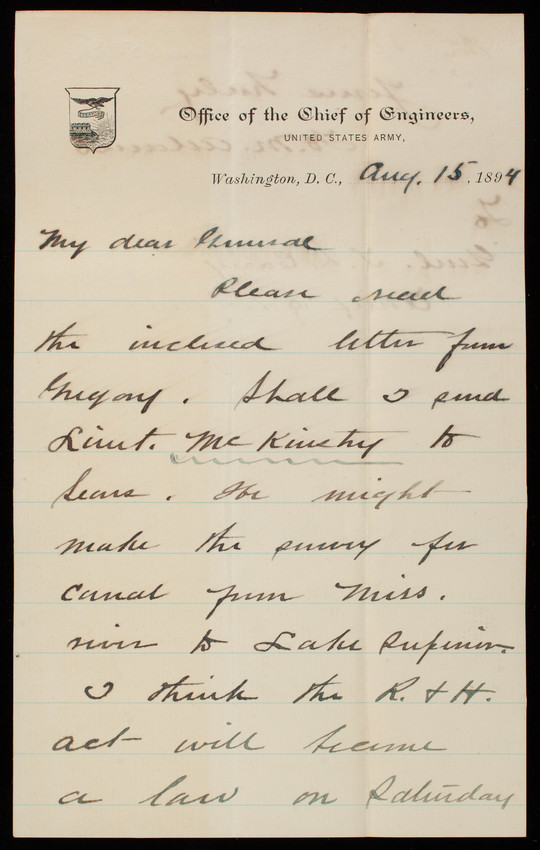 Office of the Chief of Engineers,
UNITED STATES ARMY,
Washington, D. C., Aug. 15, 1894
My dear General
Please read
the inclosed letter from
Gregory. Shall I send
Lieut. McKinstry to
Sears. He might
make the survey for
canal from Miss.
river to Lake Superior.
I think the R. & H.
act will become
a law on Saturday